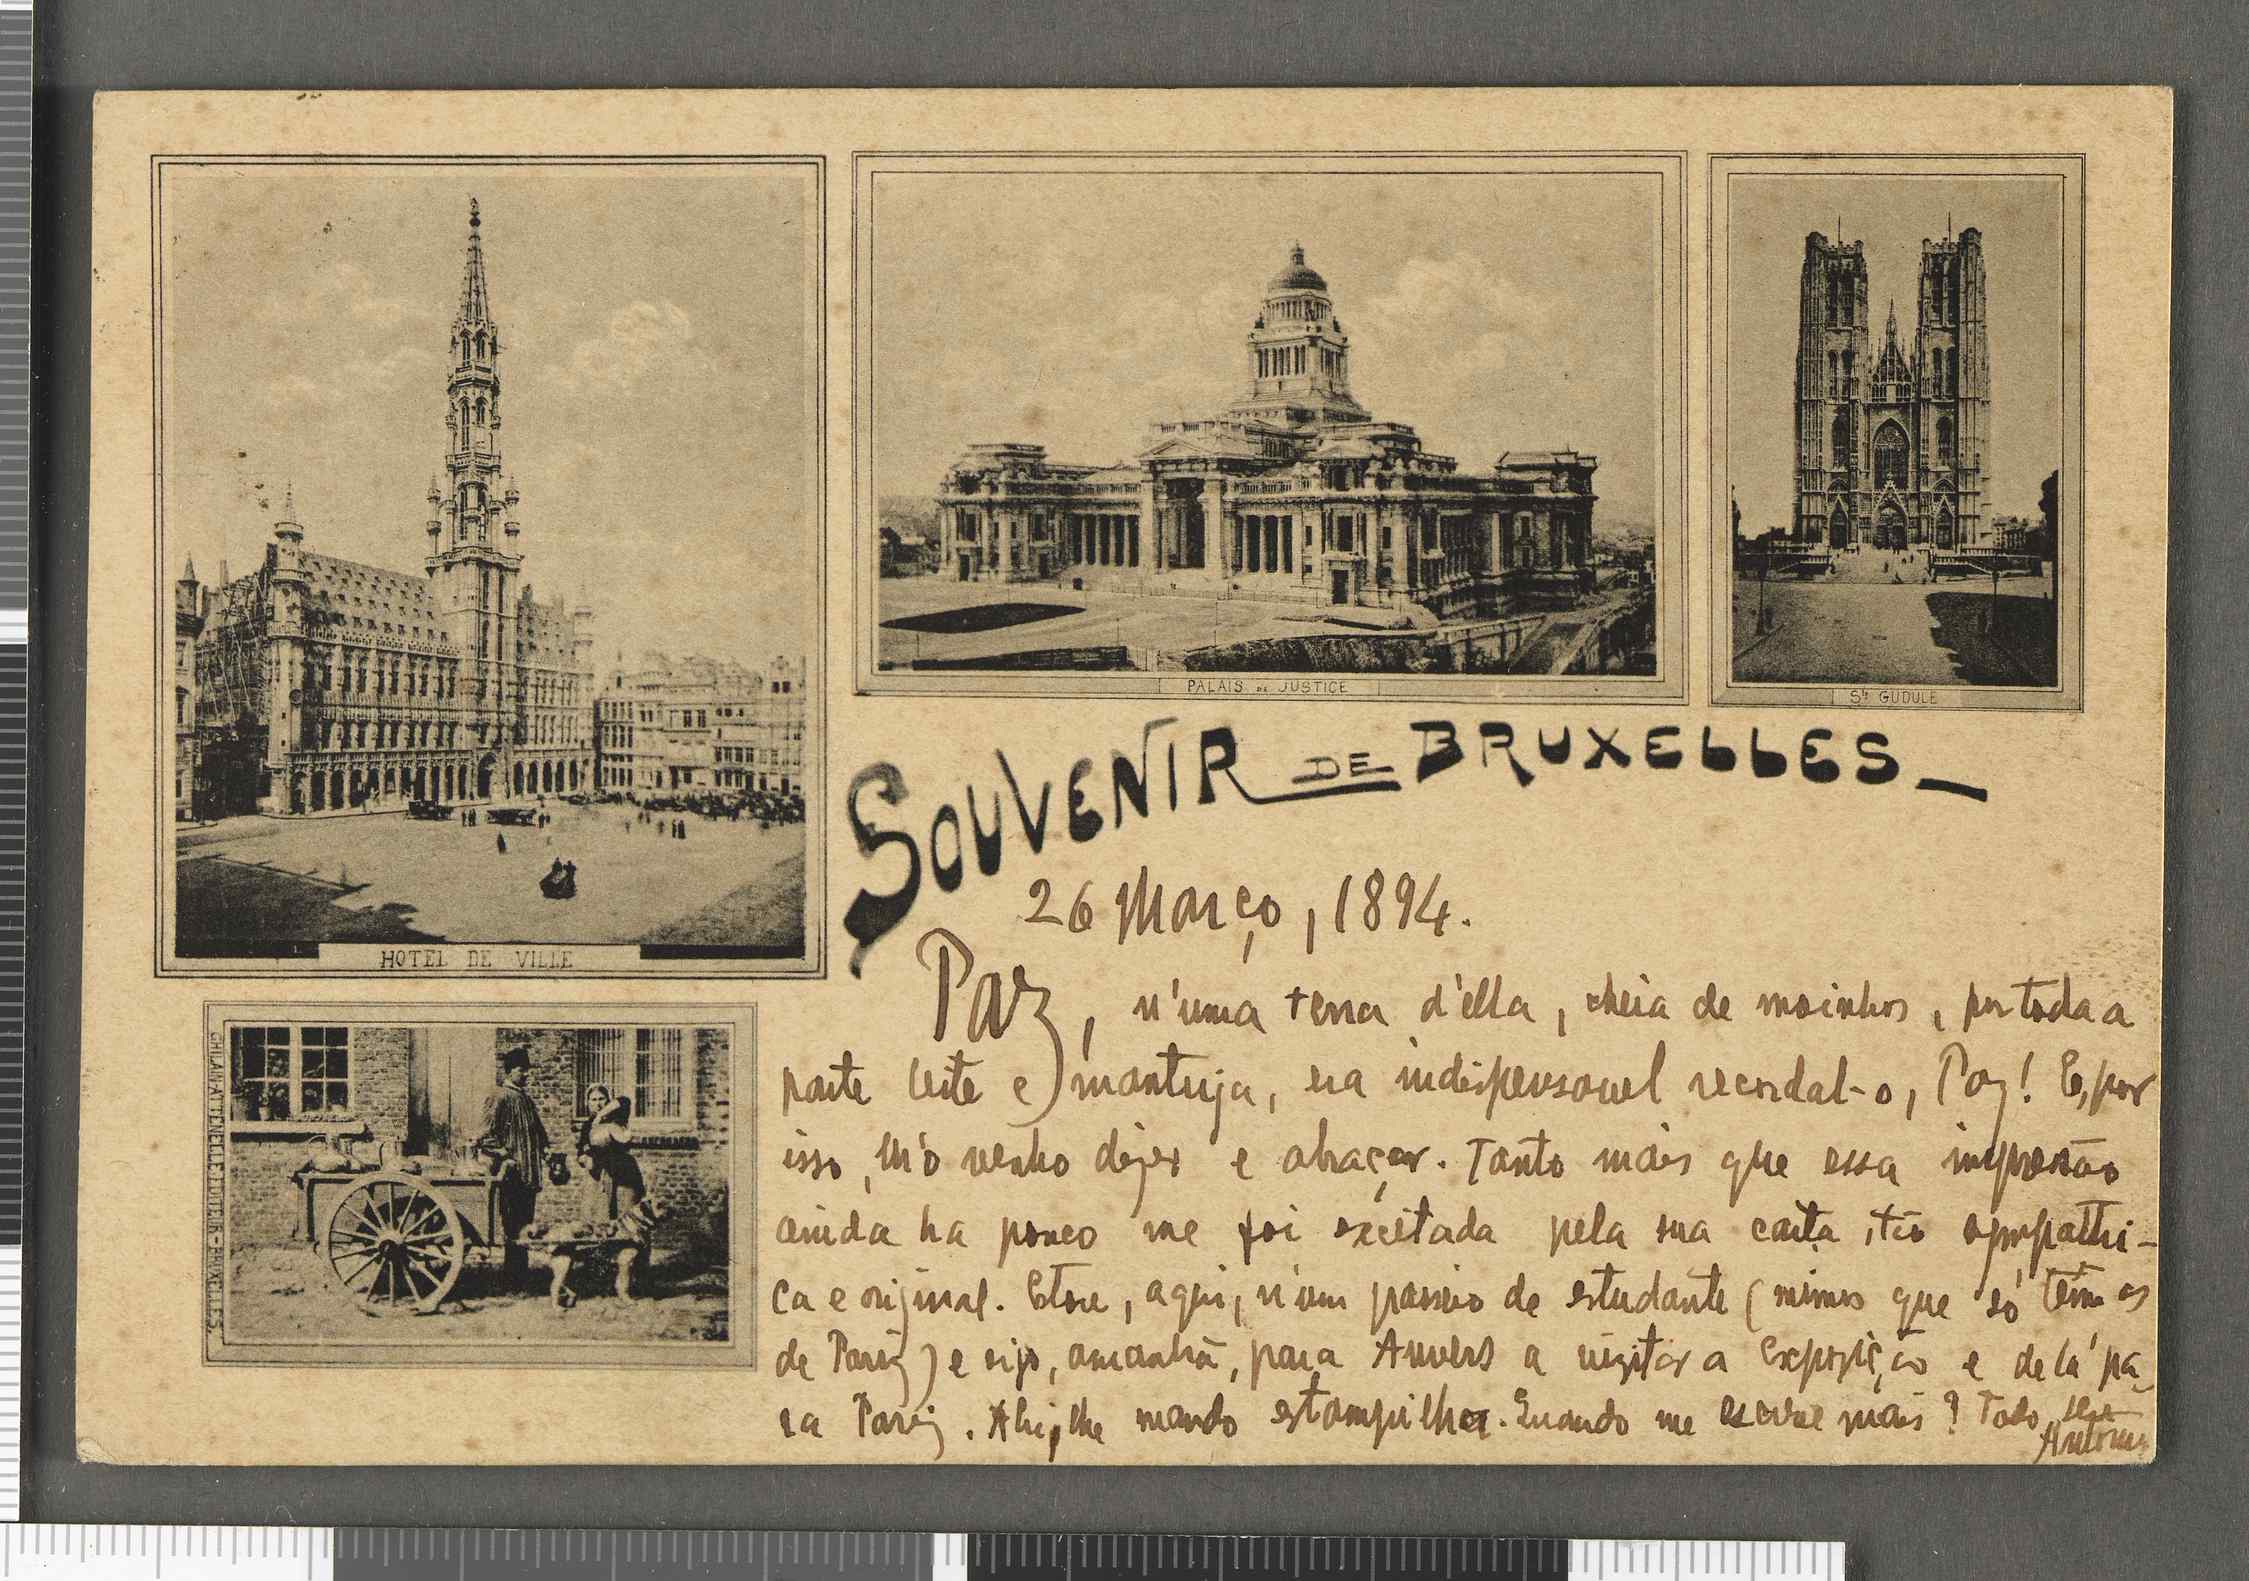 HOTEL DE VILLE
PALAIS DE JUSTICE
Ste GUDULE
GHILAIN-ATTENELLE EDITEUR-BRUXELLES.
SOUVENIR DE BRUXELLES
26 Março, 1894.
Paz, n'uma terra d'ella, cheia de moinhos, por toda a
parte leite e manteiga, era indispensavel recordal-o, Paz! E, por
isso, lh'o venho dizer e abraçar. Tanto mais que essa impressão
ainda ha pouco me foi excitada pela sua carta, tão sympathi-
ca e original. Estou, aqui, n'um passeio de estudante (mimos que só têm os
de Pariz) e sigo, amanhã, para Anvers a vizitar a Expozição e de lá pa-
ra Pariz. Ahi, lhe mando estampilhas. Quando me escreve mais? Todo seu
Antonio